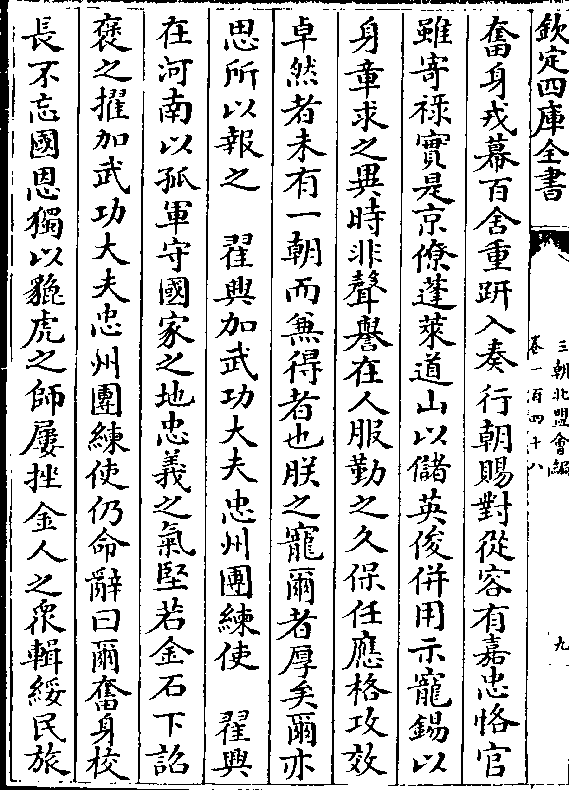 欽定四庫全書
三朝北盟會編
卷一百四十八
九
奮身戎幕百舍重趼入奏行朝賜對從容有嘉忠恪官
雖寄祿實是京僚蓬萊道山以儲英俊併用示寵錫以
身章求之異時非聲譽在人服勤之久保任應格攻效
卓然者未有一朝而兼得者也朕之寵爾者厚矣爾亦
思所以報之　翟興加武功大夫忠州團練使　翟興
在河南以孤軍守國家之地忠義之氣堅若金石下詔
褒之擢加武功大夫忠州團練使仍命辭曰爾奮身校
長不忘國恩獨以貔虎之師屢挫金人之衆輯綏民旅